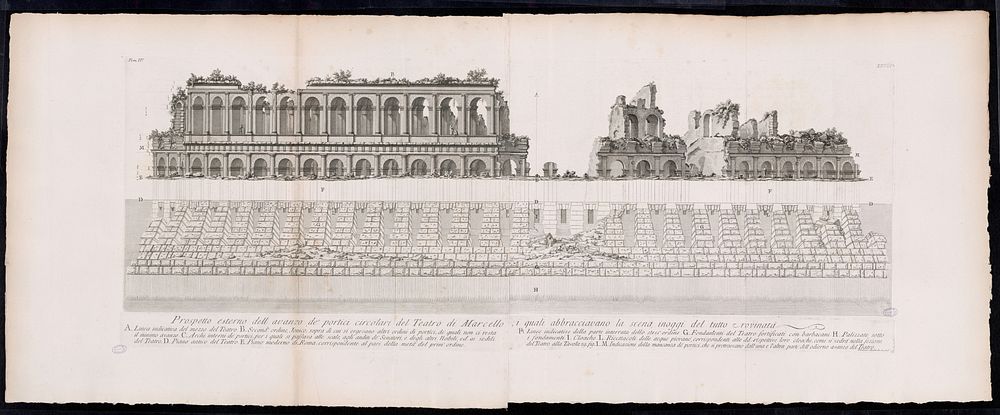 Tom. IV.
A
B
M
M
E
E
F
F
D
D
D
D
H
H
Prospetto esterno dell' avanzo de' portici circolari del Teatro di Marcello, i quali abbracciavano la scena inoggi del tutto rovinata
A. Linea indicativa del mezzo del Teatro B. Second' ordine Ionico, sopra di cui si ergevano altri ordini di portici, de' quali non ci resta
il minimo avanzo C. Archi interni de' portici per i quali si passava alle scale, agli anditi de' Senatori, e degli altri Nobili, ed ai sedili
del Teatro. D. Piano antico del Teatro. E. Piano moderno di Roma corrispondente al pari della metà del prim' ordine.
F. Linee indicative della parte interrata dello stess' ordine G. Fondamenti del Teatro fortificati con barbacani H. Palizzate sotto
i fondamenti I. Cloache L. Ricettacoli delle acque piovane, corrispondenti alle dd. rispettive loro cloache, come si vedrà nella sezione
del Teatro alla Tavola 29. fig. I. M. Indicazione della mancanza de' portici, che si protraevano dall' una e l'altra parte dell' odierno avanzo del Teatro.